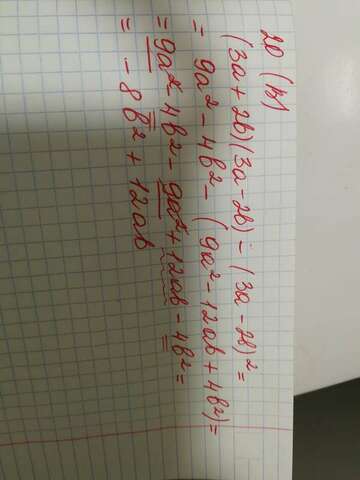 20 (н)
(3a + 2b)(3a - 2b) - (3a - 2b)² =
= 9a² - 4b² - (9a² - 12ab + 4b²) =
= 9a² - 4b² - 9a² + 12ab - 4b² =
= - 8b² + 12ab